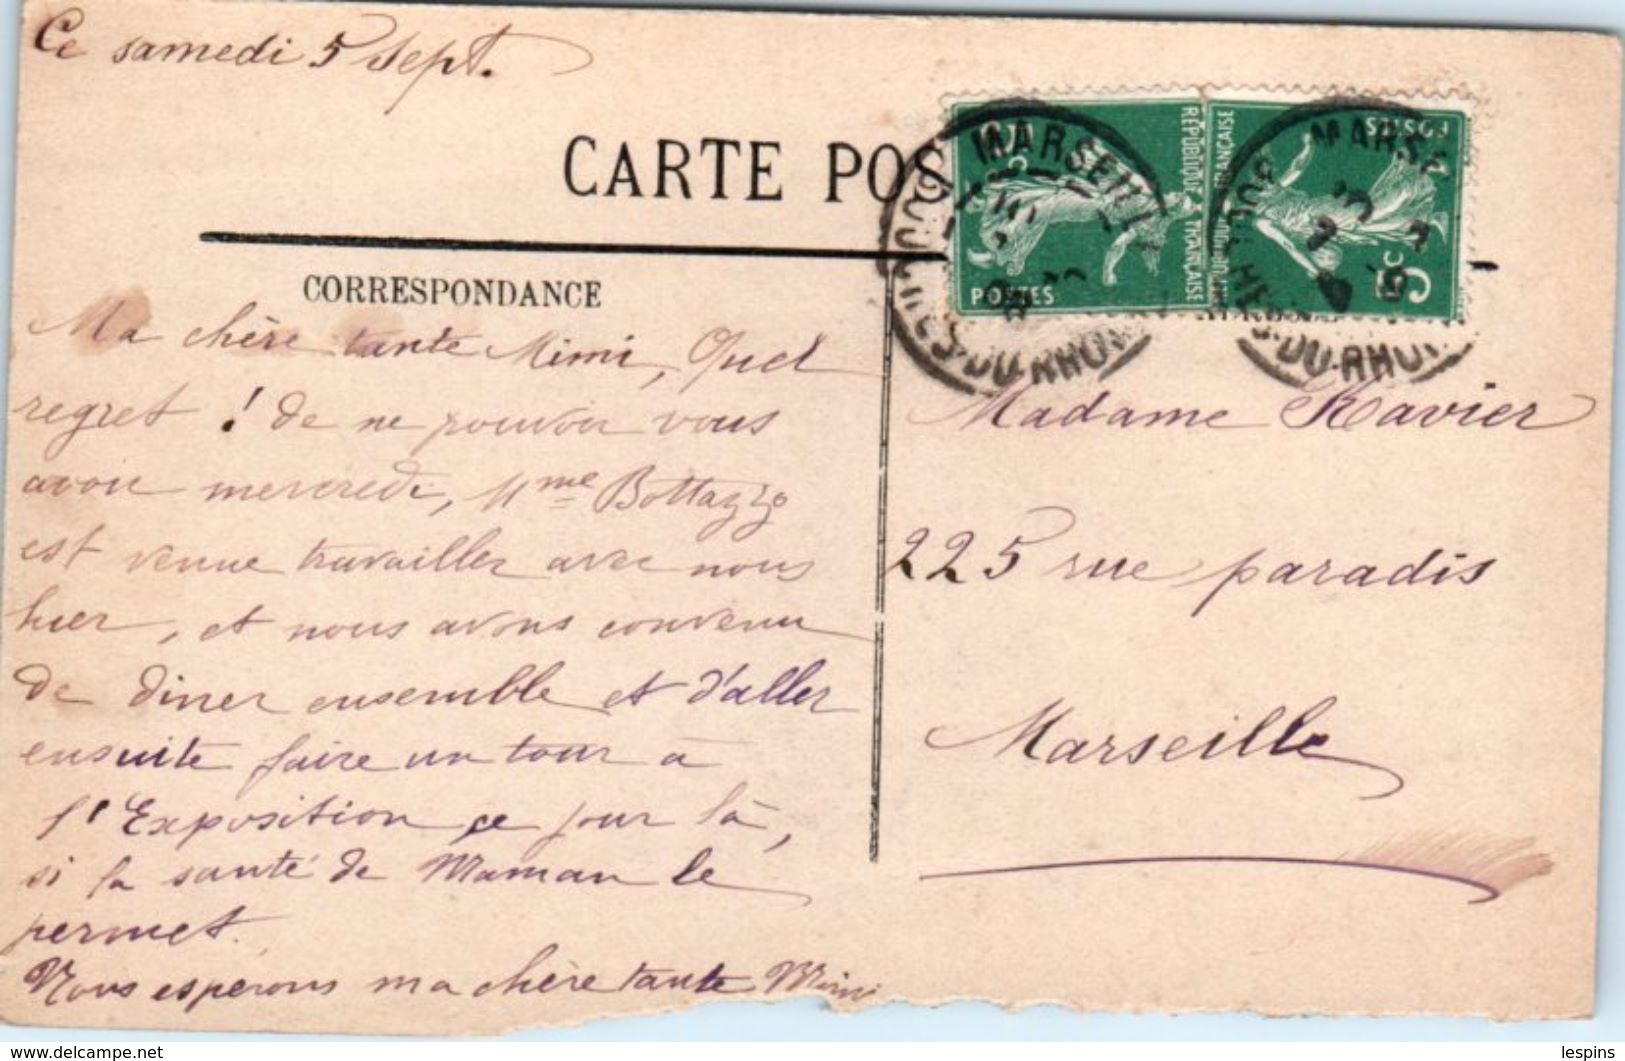 Ce samedi 5 sept.
CARTE POS
CORRESPONDANCE
Ma chère tante Mimi, Quel
regret ! de ne pouvoir vous
avoir mercredi, Mme Bottazzo
est venue travailler avec nous
hier, et nous avons convenu
de diner ensemble et d'aller
ensuite faire un tour à
l'Exposition ce jour là,
si la santé de Maman le
permet.
Nous espérons ma chère tante Mimi
5c
POSTES
REPUBLIQUE FRANÇAISE
REPUBLIQUE FRANÇAISE
POSTES
5c
MARSEILL
BOUCHES-DU-RHON
MARSE
BOUCHES-DU-RHON
Madame Ravier
225 rue paradis
Marseille
delcampe.net
lespins